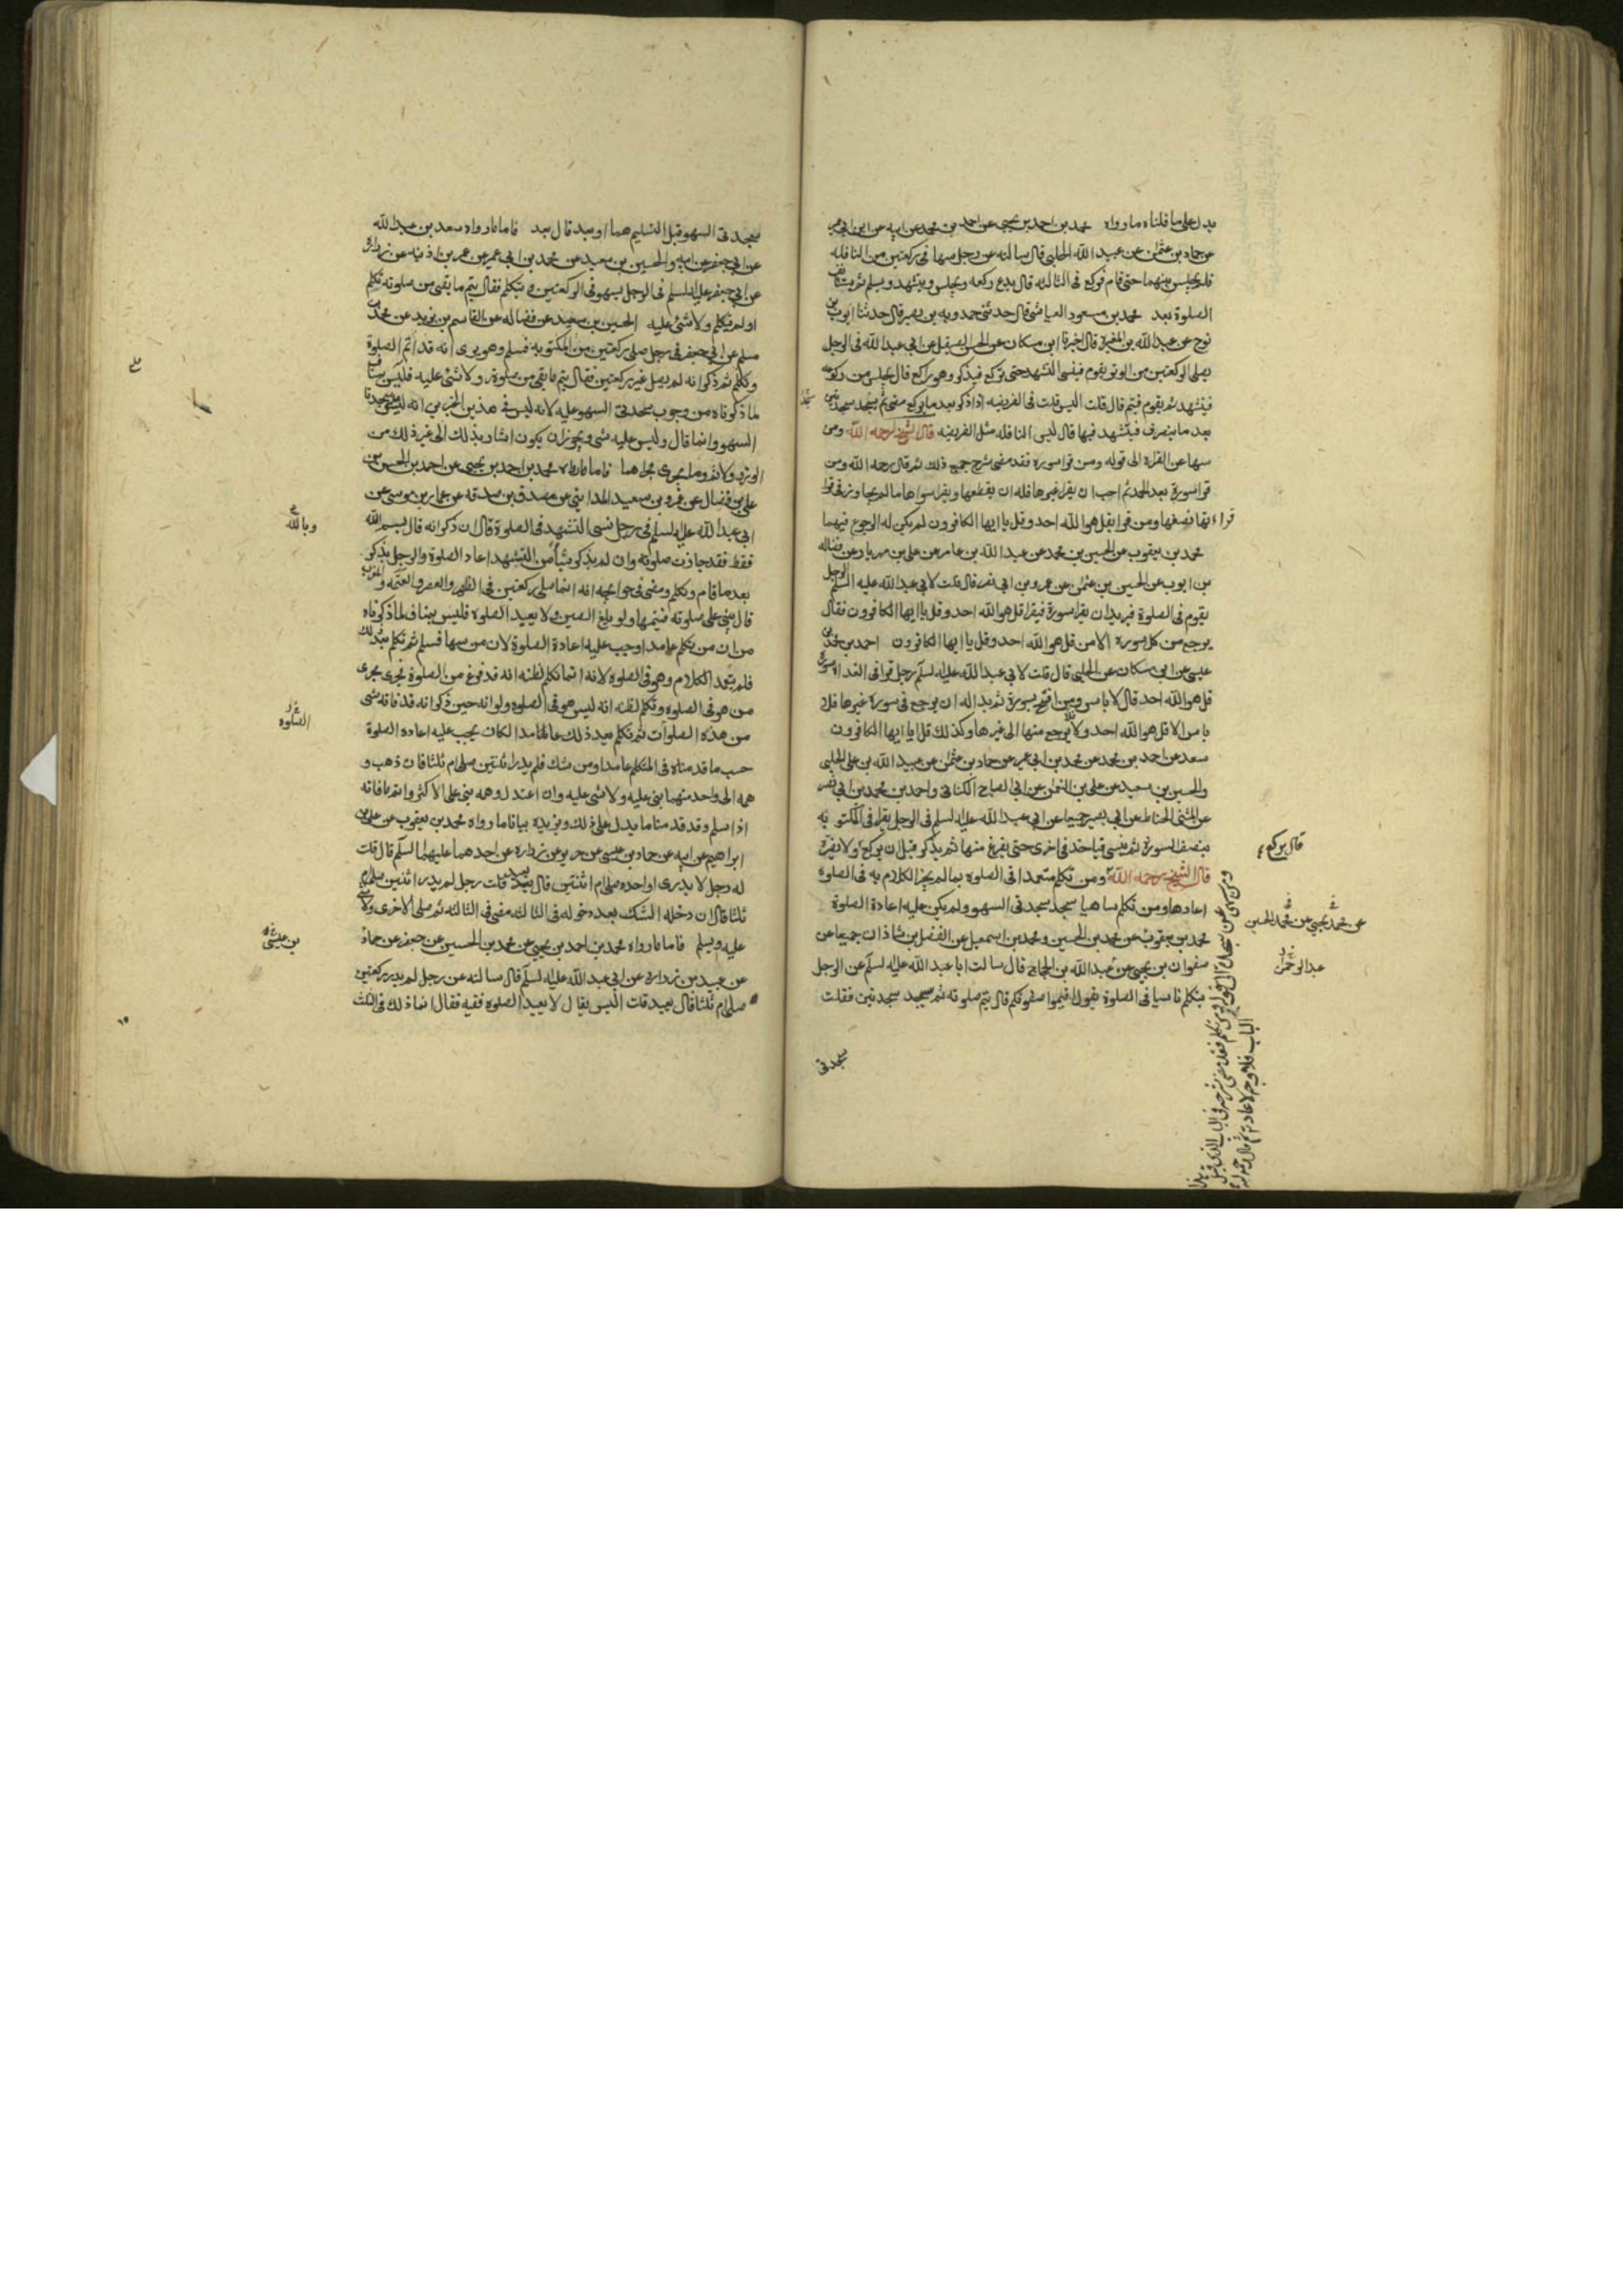 يدل على ما قلناه ما رواه محمد بن احمد بن يحيى عن احمد بن محمد عن ابيه عن ابن ابي عمير
عن حماد بن عثمن عن عبيد الله الحلبي قال سالته عن رجل سها في ركعتين من النافلة
فلم يجلس بينهما حتى قام فركع في الثالثه قال يدع ركعه ويجلس ويتشهد ويسلم ثم يستانف
الصلوة بعد محمد بن مسعود العياشي قال حدثني حمدويه بن نصير قال حدثنا ايوب بن
نوح عن عبد الله بن المغيرة قال اخبرنا ابن مسكان عن الحسن الصيقل عن ابي عبد الله في الرجل
يصلي الركعتين من الوتر يقوم فينسى التشهد حتى يركع فيذكر وهو راكع قال يجلس من ركوعه
فيتشهد ثم يقوم فيتم قال قلت اليس قلت في الفريضه اذا ذكر بعد ما يركع مضى ثم يسجد سجدتين
بعد ما ينصرف فيتشهد فيها قال ليس النافله مثل الفريضه قال الشيخ رحمه الله ومن
سها عن القراة الى قوله ومن قرا سورة فقد مضى شرح جميع ذلك ثم قال رحمه الله ومن
قرا سورة بعد الحمد ثم احب ان يقرا غيرها فله ان يقطعها ويقرا سواها ما لم يتجاوز في
قراءتها نصفها ومن قرا بقل هو الله احد وقل يا ايها الكافرون لم يكن له الرجوع فيهما
محمد بن يعقوب عن الحسين بن محمد عن عبد الله بن عامر عن علي بن مهزيار عن فضاله
بن ايوب عن الحسين بن عثمن عن عمرو بن ابي نصر قال قلت لابي عبد الله عليه السلم الرجل
يقوم في الصلوة فيريد ان يقرا سورة فيقرا قل هو الله احد وقل يا ايها الكافرون فقال
يرجع من كل سورة الا من قل هو الله احد وقل يا ايها الكافرون احمد بن محمد بن
عيسى عن ابن مسكان عن الحلبي قال قلت لابي عبد الله عليه لسلم رجل قرا في الغداة سورة
قل هو الله احد قال لا باس ومن افتتح بسورة ثم بدا له ان يرجع في سورة غيرها فلا
باس الا قل هو الله احد ولا يرجع منها الى غيرها وكذلك قل يا ايها الكافرون
سعد عن احمد بن محمد عن محمد بن ابي عمير عن حماد بن عثمن عن عبيد الله بن علي الحلبي
والحسين بن سعيد عن علي بن النعمان عن ابي الصباح الكناني واحمد بن محمد بن ابي نصر
عن المثنى الحناط عن ابي بصير جميعا عن ابي عبد الله عليه لسلم في الرجل يقرا في المكتوبة
بنصف السورة ثم ينسى فياخذ في اخرى حتى يفرغ منها ثم يذكر قبل ان يركع ولا يضره
قال الشيخ رحمه الله ومن تكلم متعمدا في الصلوة بما لم يجز الكلام به في الصلوة
اعادها ومن تكلم ساهيا سجد سجدتي السهو ولم يكن عليه اعادة الصلوة
محمد بن يعقوب عن محمد بن الحسين ومحمد بن اسمعيل عن الفضل بن شاذان جميعا عن
صفوان بن يحيى عن عبد الله بن الحجاج قال سالت ابا عبد الله عليه لسلم عن الرجل
يتكلم ناسيا في الصلوة يقول اقيموا صفوفكم قال يتم صلوته ثم يسجد سجدتين فقلت
سجدتي
قال يركع
عن محمد بن يحيى عن محمد الحسين
عبد الرحمن
سجدتي السهو قبل التسليم هما او بعد قال بعد فاما ما رواه سعد بن عبد الله
عن ابي جعفر عن ابيه والحسين بن سعيد عن محمد بن ابي عمير عن عمر بن اذينه عن زراره
عن ابي جعفر عليه لسلم في الرجل يسهو في الركعتين ويتكلم فقال يتم ما بقي من صلوته تكلم
او لم يتكلم ولا شئ عليه الحسين بن سعيد عن فضاله عن القاسم بن بريد عن محمد بن
مسلم عن ابي جعفر في رجل صلى ركعتين من المكتوبه فسلم وهو يرى انه قد اتم الصلوة
وتكلم ثم ذكر انه لم يصل غير ركعتين فقال يتم ما بقي من صلوته ولا شئ عليه فليس ينافي
لما ذكرناه من وجوب سجدتي السهو عليه لانه ليس في هذين الخبرين انه ليس عليه سجدتا
السهو وانما قال وليس عليه شئ ويجوز ان يكون اشار بذلك الى غير ذلك من
الوزر والاثم وما يجري مجراهما فاما ما رواه محمد بن احمد بن يحيى عن احمد بن الحسن بن
علي بن فضال عن عمرو بن سعيد المدايني عن مصدق بن صدقه عن عمار بن موسى عن
ابي عبد الله عليه لسلم في رجل نسي التشهد في الصلوة قال ان ذكر انه قال بسم الله
فقط فقد جازت صلوته وان لم يذكر شيئا من التشهد اعاد الصلوة والرجل يذكر
بعد ما قام وتكلم ومضى في حوائجه انه انما صلى ركعتين في الظهر والعصر والعتمه والمغرب
قال يبني على صلوته فيتمها ولو بلغ الصين ولا يعيد الصلوة فليس ينافي لما ذكرناه
من ان من تكلم عامدا وجب عليه اعادة الصلوة لان من سها فسلم ثم تكلم بعد ذلك
فلم يتعمد الكلام وهو في الصلوة لانه انما تكلم لظنه انه قد فرغ من الصلوة فجرى مجرى
من هو في الصلوة وتكلم لظنه انه ليس هو في الصلوة ولو انه حين ذكر انه قد فاته شئ
من هذه الصلوات ثم تكلم بعد ذلك عامدا لكان يجب عليه اعاده الصلوة
حسب ما قدمناه في المتكلم عامدا ومن شك فلم يدر اثنتين صلى ام ثلثا فان ذهب و
همه الى واحد منهما بنى عليه ولا شئ عليه وان اعتدل وهمه بنى على الاكثر واتم ما فاته
اذا سلم وقد قدمنا ما يدل على ذلك ويزيده بيانا ما رواه محمد بن يعقوب عن علي بن
ابراهيم عن ابيه عن حماد بن عيسى عن حريز عن زراره عن احدهما عليهما السلم قال قلت
له رجل لا يدري او احده صلى ام اثنتين قال يعيد قلت رجل لم يدر اثنين صلى ام
ثلثا قال ان دخله الشك بعد دخوله في الثالثه مضى في الثالثه ثم صلى الاخرى ولا شئ
عليه ويسلم فاما ما رواه محمد بن احمد بن يحيى عن محمد بن الحسين عن جعفر عن حماد
عن عبيد بن زراره عن ابي عبد الله عليه لسلم قال سالته عن رجل لم يدر ركعتين
صلى ام ثلثا قال يعيد قلت اليس يقال لا يعيد الصلوة فقيه فقال انما ذلك في الثلث
وبالله
الصلوه